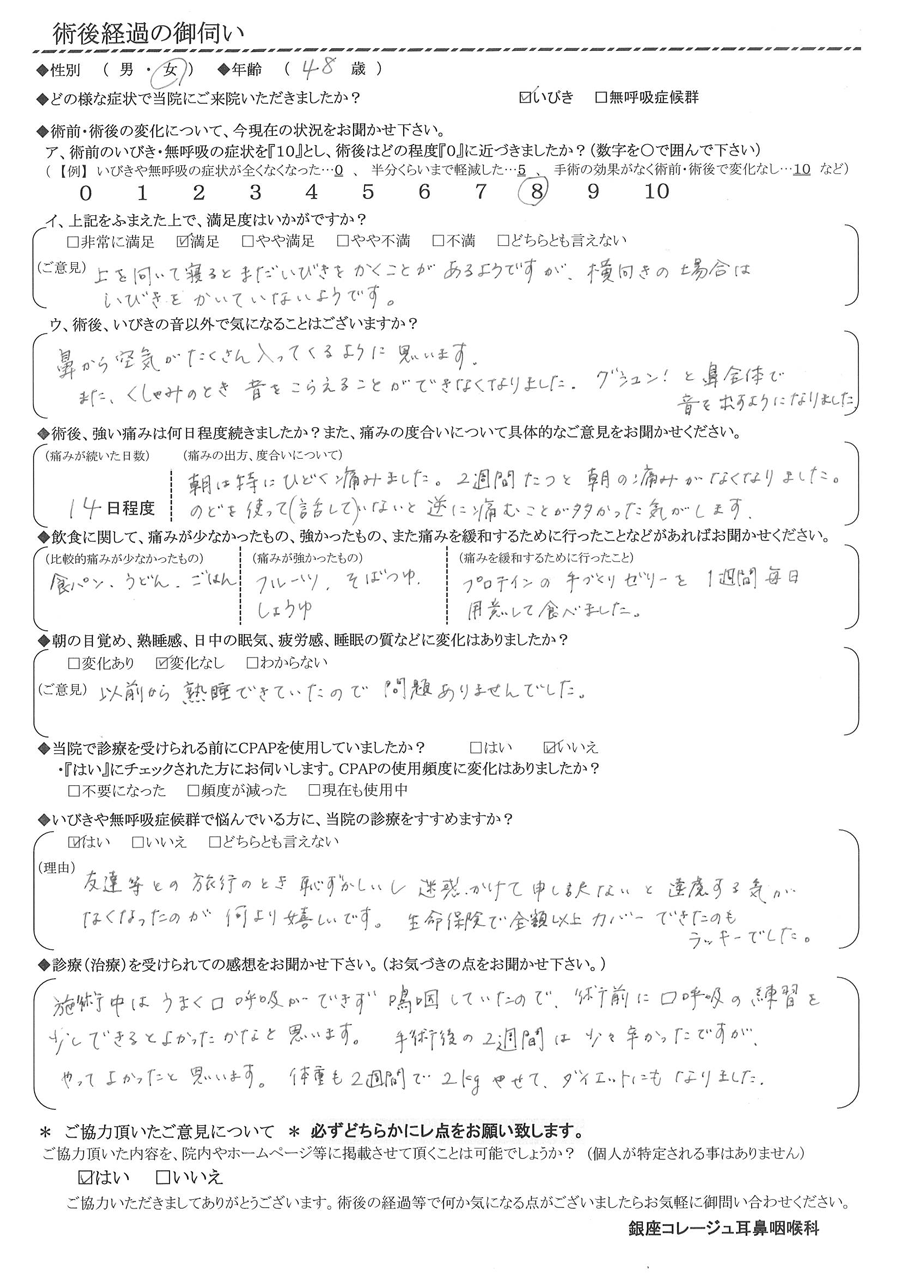 術後経過の御伺い
◆性別 （ 男 ・ 女 ） ◆年齢 （ 48 歳 ）
◆どの様な症状で当院にご来院いただきましたか？ ☑いびき □無呼吸症候群
◆術前・術後の変化について、今現在の状況をお聞かせ下さい。
ア、術前のいびき・無呼吸の症状を『10』とし、術後はどの程度『0』に近づきましたか？（数字を○で囲んで下さい）
（【例】 いびきや無呼吸の症状が全くなくなった…0 、 半分くらいまで軽減した…5 、 手術の効果がなく術前・術後で変化なし…10 など）
0 1 2 3 4 5 6 7 8 9 10
イ、上記をふまえた上で、満足度はいかがですか？
□非常に満足 ☑満足 □やや満足 □やや不満 □不満 □どちらとも言えない
（ご意見） 上を向いて寝るとまだいびきをかくことがあるようですが、横向きの場合は
いびきをかいていないようです。
ウ、術後、いびきの音以外で気になることはございますか？
鼻から空気がたくさん入ってくるように思います.
また、くしゃみのとき 音をこらえることができなくなりました. グシュン！と鼻全体で
音を出すようになりました
◆術後、強い痛みは何日程度続きましたか？また、痛みの度合いについて具体的なご意見をお聞かせください。
（痛みが続いた日数） （痛みの出方、度合いについて）
朝は特にひどく痛みました。2週間たつと朝の痛みがなくなりました。
14日程度 のどを使って(話して)いないと逆に痛むことが多かった気がします.
◆飲食に関して、痛みが少なかったもの、強かったもの、また痛みを緩和するために行ったことなどがあればお聞かせください。
（比較的痛みが少なかったもの） （痛みが強かったもの） （痛みを緩和するために行ったこと）
食パン、うどん、ごはん フルーツ、そばつゆ. プロテインの手づくりゼリーを1週間毎日
しょうゆ 用意して食べました。
◆朝の目覚め、熟睡感、日中の眠気、疲労感、睡眠の質などに変化はありましたか？
□変化あり ☑変化なし □わからない
（ご意見） 以前から熟睡できていたので問題ありませんでした。
◆当院で診療を受けられる前にCPAPを使用していましたか？ □はい ☑いいえ
・『はい』にチェックされた方にお伺いします。CPAPの使用頻度に変化はありましたか？
□不要になった □頻度が減った □現在も使用中
◆いびきや無呼吸症候群で悩んでいる方に、当院の診療をすすめますか？
☑はい □いいえ □どちらとも言えない
（理由） 友達等との旅行のとき恥ずかしいし迷惑かけて申し訳ないと遠慮する気が
なくなったのが何より嬉しいです。生命保険で金額以上カバーできたのも
ラッキーでした。
◆診療（治療）を受けられての感想をお聞かせ下さい。（お気づきの点をお聞かせ下さい。）
施術中はうまく口呼吸ができず嗚咽していたので、術前に口呼吸の練習を
少しできるとよかったかなと思います。 手術後の2週間は少々辛かったですが、
やってよかったと思います。体重も2週間で2kgやせて、ダイエットにもなりました.
＊ ご協力頂いたご意見について ＊ 必ずどちらかにレ点をお願い致します。
ご協力頂いた内容を、院内やホームページ等に掲載させて頂くことは可能でしょうか？ （個人が特定される事はありません）
☑はい □いいえ
ご協力いただきましてありがとうございます。術後の経過等で何か気になる点がございましたらお気軽に御問い合わせください。
銀座コレージュ耳鼻咽喉科